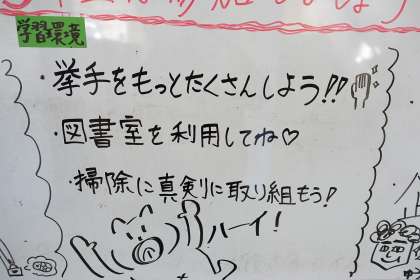 学習環境
・挙手をもっとたくさんしよう!!
・図書室を利用してね♡
・掃除に真剣に取り組もう!
ハーイ!